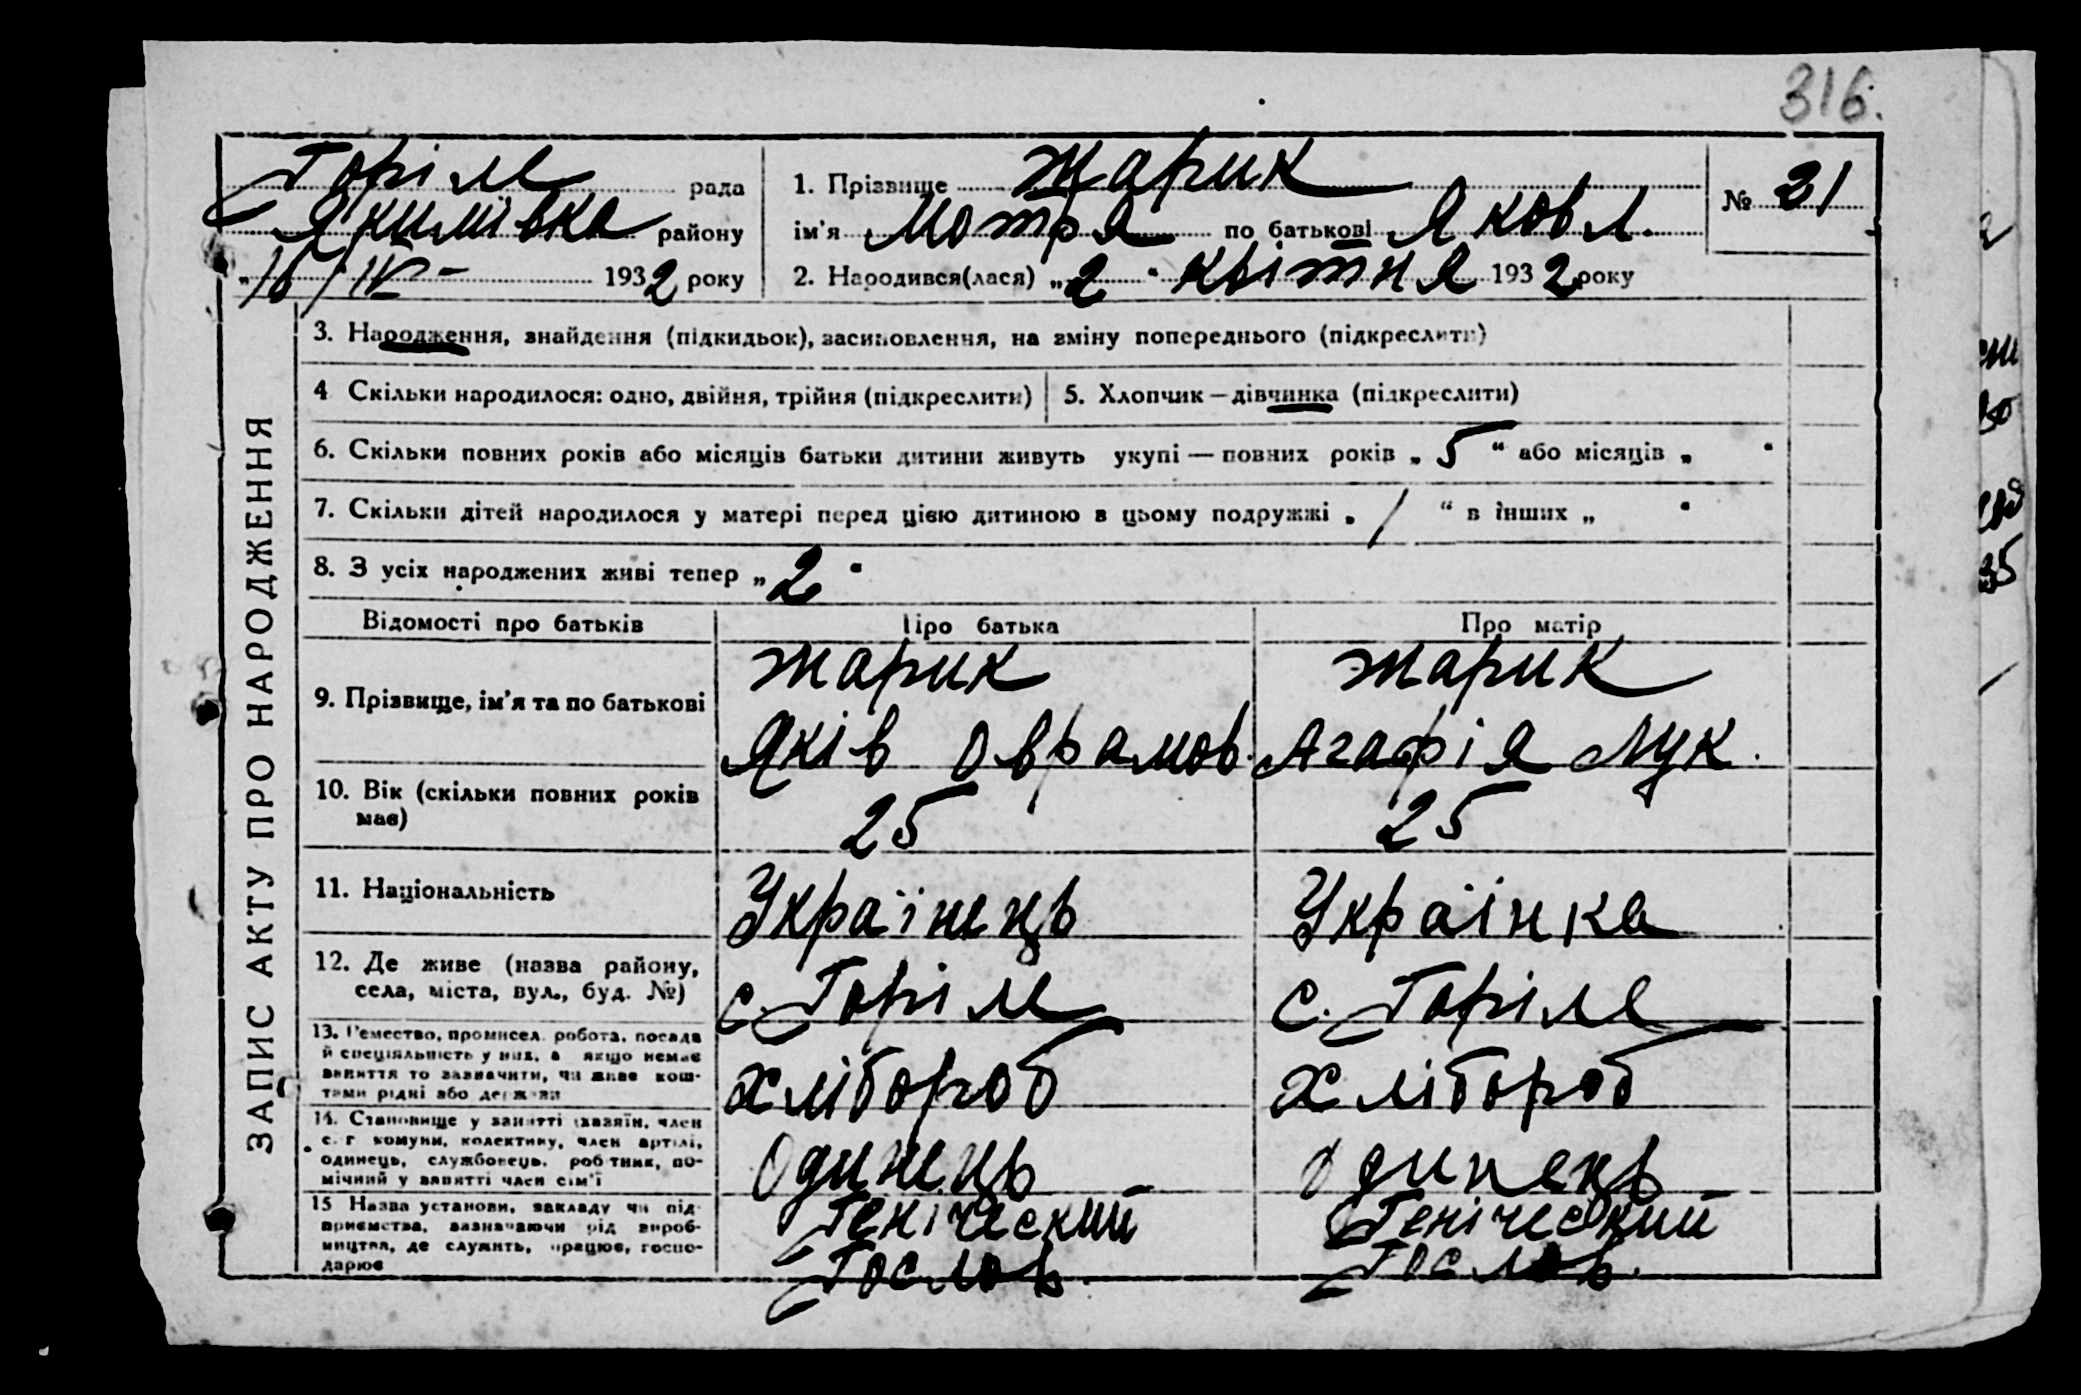 316.
Горіле рада
Якимівка району
„16/IV- 1932 року
1. Прізвище Жарик
ім'я Мотря по батькові Яковл.
2. Народився(лася) „2“ квітня 1932 року
№ 31
ЗАПИС АКТУ ПРО НАРОДЖЕННЯ
3. Народження, знайдення (підкидьок), засиновлення, на зміну попереднього (підкреслити)
4 Скільки народилося: одно, двійня, трійня (підкреслити)
5. Хлопчик — дівчинка (підкреслити)
6. Скільки повних років або місяців батьки дитини живуть укупі — повних років „5“ або місяців „ “
7. Скільки дітей народилося у матері перед цією дитиною в цьому подружжі „/“ в інших „ “
8. З усіх народжених живі тепер „2“
Відомості про батьків Про батька Про матір
9. Прізвище, ім'я та по батькові
Жарик Жарик
Яків Оврамов. Агафія Лук.
10. Вік (скільки повних років
має)
25 25
11. Національність
Українець Українка
12. Де живе (назва району,
села, міста, вул., буд. №)
с. Горіле с. Горіле
13. Ремество, промисел, робота, посада
й спеціяльність у них, а якщо немає
заняття то зазначити, чи живе кош-
тами рідні або держави
хлібороб хлібороб
14. Становище у занятті (хазяїн, член
с. г комуни, колективу, член артілі,
одинець, службовець, робітник, по-
мічний у занятті член сім'ї
Одинець Одинець
15 Назва установи, закладу чи під-
приємства, зазначаючи рід вироб-
ництва, де служить, працює, госпо-
дарює
Генический Генический